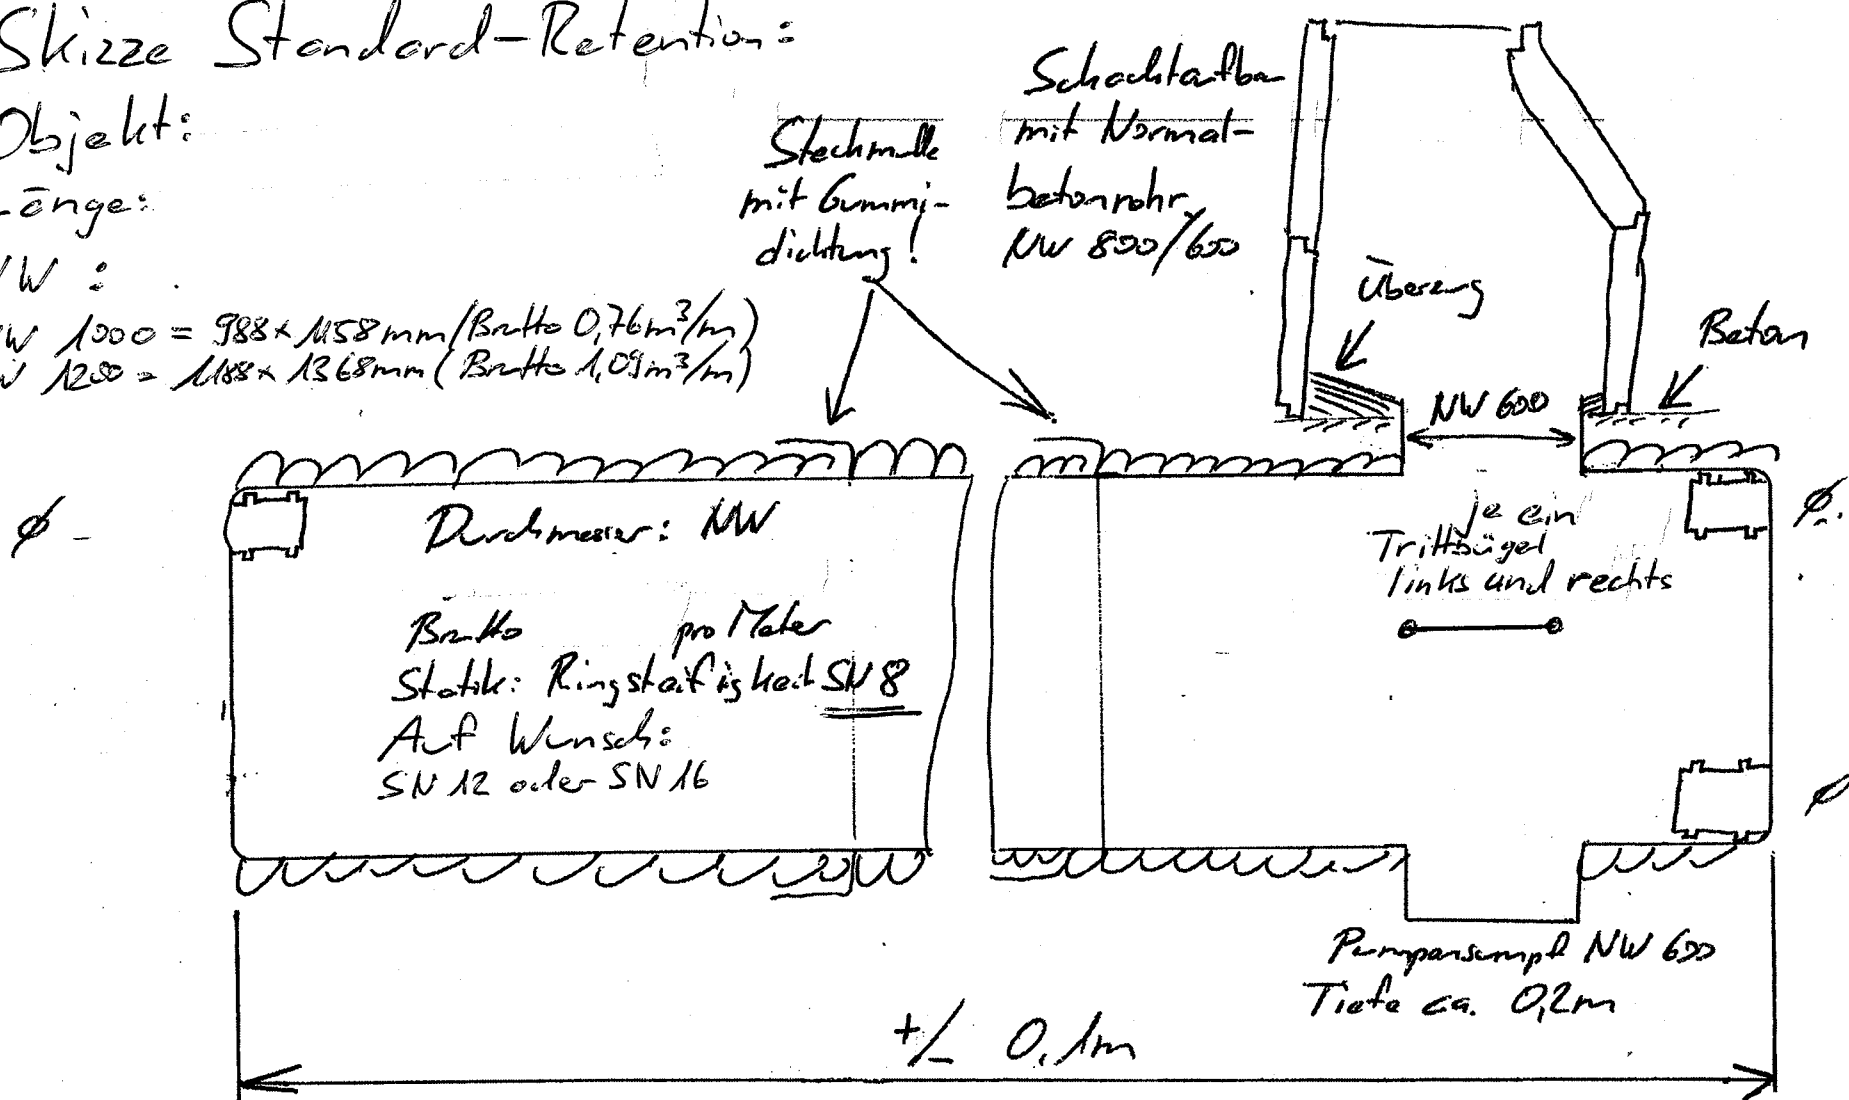 Skizze Standard-Retention:
Objekt:
Länge:
NW :
NW 1000 = 988 x 1158 mm (Brutto 0,76 m³/m)
NW 1200 = 1188 x 1368 mm (Brutto 1,09 m³/m)
Steckmuffe
mit Gummi-
dichtung!
Schachtaufbau
mit Normal-
betonrohr
NW 800/600
Überzug
Beton
NW 600
Ø -
Durchmesser: NW
Brutto pro Meter
Statik: Ringsteifigkeit SN 8
Auf Wunsch:
SN 12 oder SN 16
je ein
Trittbügel
links und rechts
Ø.
Ø
Pumpensumpf NW 600
Tiefe ca. 0,2m
+/- 0,1m